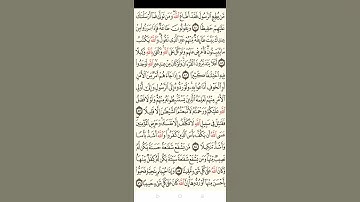 مَّن يُطِعِ ٱلرَّسُولَ فَقَدْ أَطَاعَ ٱللَّهَ وَمَن تَوَلَّىٰ فَمَآ أَرْسَلْنَٰكَ
عَلَيْهِمْ حَفِيظًا ٨٠ وَيَقُولُونَ طَاعَةٌ فَإِذَا بَرَزُوا۟ مِنْ
عِندِكَ بَيَّتَ طَآئِفَةٌ مِّنْهُمْ غَيْرَ ٱلَّذِى تَقُولُ وَٱللَّهُ يَكْتُبُ
مَا يُبَيِّتُونَ فَأَعْرِضْ عَنْهُمْ وَتَوَكَّلْ عَلَى ٱللَّهِ وَكَفَىٰ بِٱللَّهِ وَكِيلًا
٨١ أَفَلَا يَتَدَبَّرُونَ ٱلْقُرْءَانَ وَلَوْ كَانَ مِنْ عِندِ غَيْرِ ٱللَّهِ لَوَجَدُوا۟
فِيهِ ٱخْتِلَٰفًا كَثِيرًا ٨٢ وَإِذَا جَآءَهُمْ أَمْرٌ مِّنَ ٱلْأَمْنِ
أَوِ ٱلْخَوْفِ أَذَاعُوا۟ بِهِۦ وَلَوْ رَدُّوهُ إِلَى ٱلرَّسُولِ وَإِلَىٰٓ أُو۟لِى
ٱلْأَمْرِ مِنْهُمْ لَعَلِمَهُ ٱلَّذِينَ يَسْتَنۢبِطُونَهُۥ مِنْهُمْ وَلَوْلَا فَضْلُ
ٱللَّهِ عَلَيْكُمْ وَرَحْمَتُهُۥ لَٱتَّبَعْتُمُ ٱلشَّيْطَٰنَ إِلَّا قَلِيلًا ٨٣
فَقَٰتِلْ فِى سَبِيلِ ٱللَّهِ لَا تُكَلَّفُ إِلَّا نَفْسَكَ وَحَرِّضِ ٱلْمُؤْمِنِينَ
عَسَى ٱللَّهُ أَن يَكُفَّ بَأْسَ ٱلَّذِينَ كَفَرُوا۟ وَٱللَّهُ أَشَدُّ بَأْسًا
وَأَشَدُّ تَنكِيلًا ٨٤ مَّن يَشْفَعْ شَفَٰعَةً حَسَنَةً يَكُن لَّهُۥ
نَصِيبٌ مِّنْهَا وَمَن يَشْفَعْ شَفَٰعَةً سَيِّئَةً يَكُن لَّهُۥ كِفْلٌ مِّنْهَا
وَكَانَ ٱللَّهُ عَلَىٰ كُلِّ شَىْءٍ مُّقِيتًا ٨٥ وَإِذَا حُيِّيتُم بِتَحِيَّةٍ فَحَيُّوا۟
بِأَحْسَنَ مِنْهَآ أَوْ رُدُّوهَآ إِنَّ ٱللَّهَ كَانَ عَلَىٰ كُلِّ شَىْءٍ حَسِيبًا ٨٦